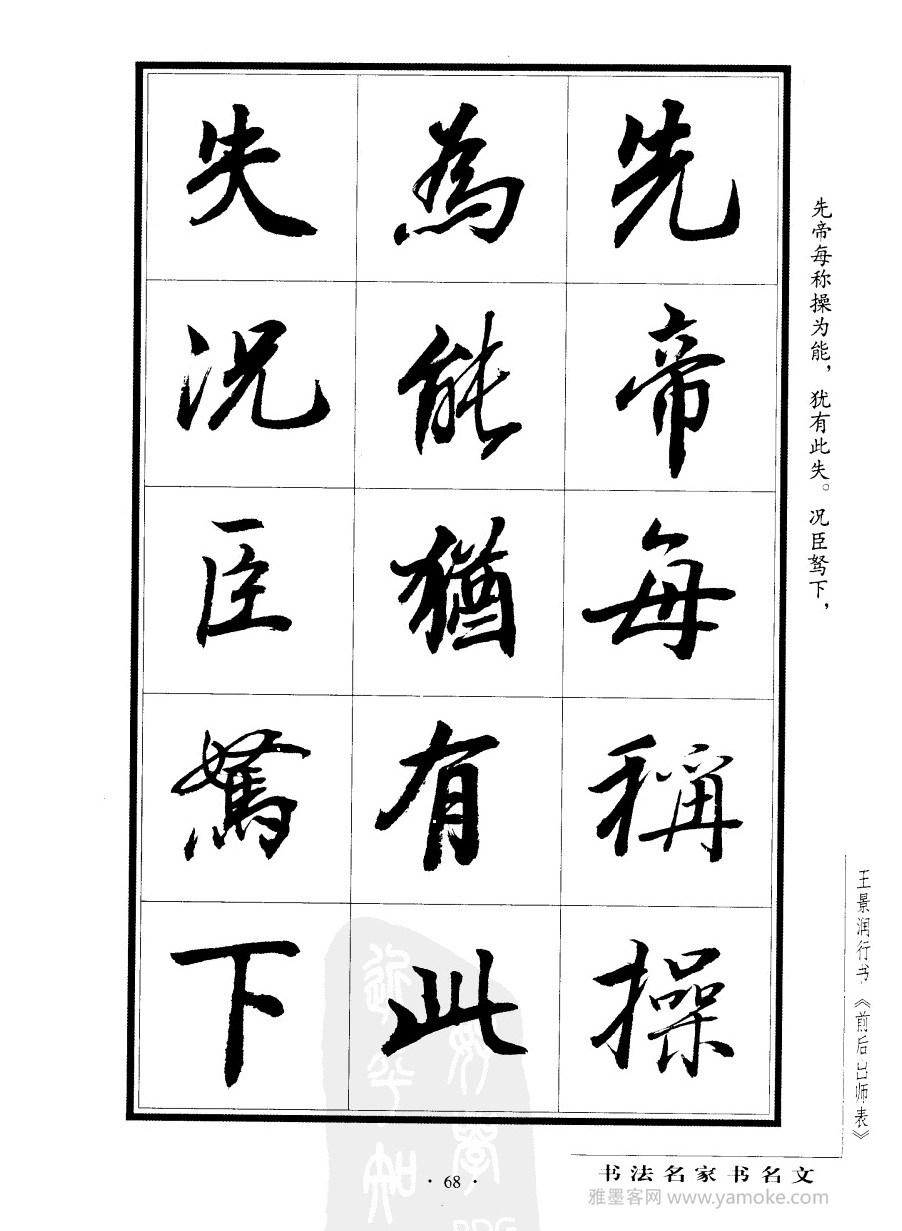 先帝每稱操
為能猶有此
失況臣駑下
先帝每称操为能，犹有此失。况臣驽下，
王景润行书《前后出师表》
书法名家书名文
·68·
雅墨客网 www.yamoke.com